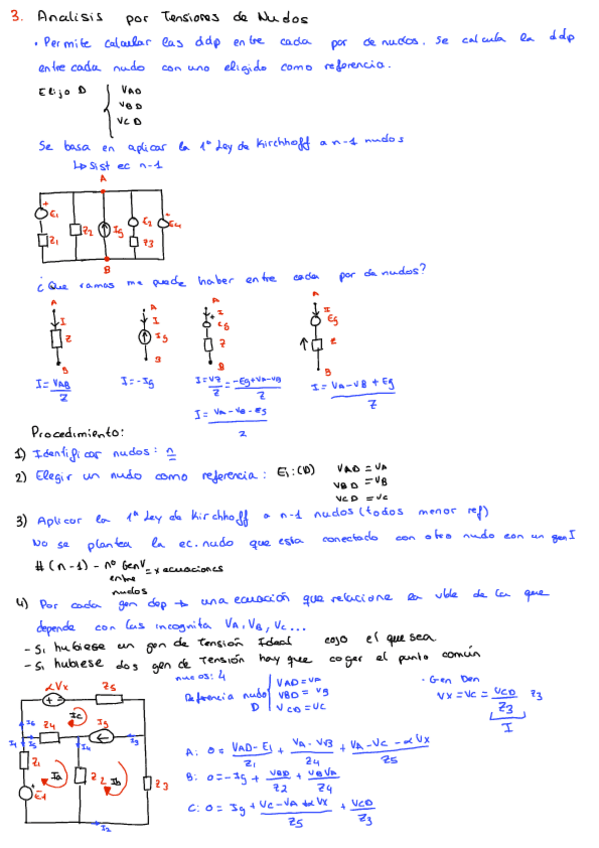 3. Analisis por Tensiones de Nudos
• Permite calcular las ddp entre cada par de nudos. Se calcula la ddp
entre cada nudo con uno eligido como referencia.
Elijo D { VAD
VBD
VCD
Se basa en aplicar la 1ª Ley de Kirchhoff a n-1 nudos
↳ Sist ec n-1
A
+ E1
Z1
Z2
Ig
E2
Z3
E4
B
¿Que ramas me puede haber entre cada par de nudos?
A
I
Z
B
I = VAB/Z
A
I
Ig
B
I = -Ig
A
I
Eg
Z
B
I = VZ/Z = -Eg+VA-VB/Z
I = VA-VB-Eg/Z
A
I
Eg
Z
B
I = VA-VB+Eg/Z
Procedimiento:
1) Identificar nudos: n
2) Elegir un nudo como referencia: Ej: (D) VAD = VA
VBD = VB
VCD = VC
3) Aplicar la 1ª Ley de Kirchhoff a n-1 nudos (todos menor ref)
No se plantea la ec. nudo que esta conectado con otro nudo con un gen I
# (n-1) - nº Gen V = x ecuaciones
entre
nudos
4) Por cada gen dep → una ecuación que relacione la vble de la que
depende con las incognita VA, VB, VC...
- Si hubiese un gen de Tensión Ideal cojo el que sea
- Si hubiese dos gen de Tensión hay que coger el punto común
nudos: 4
Referencia nudo D { VAD = VA
VBD = VB
VCD = VC
• Gen Den
Vx = VC = VCD/Z3 Z3
I
αVx
Z5
I6
Ic
Z4
Ig
I1
I5
I4
I3
Z1
Ia
Z2
Ib
Z3
E1
I2
A: 0 = VAD-E1/Z1 + VA-VB/Z4 + VA-VC-αVx/Z5
B: 0 = -Ig + VBD/Z2 + VB-VA/Z4
C: 0 = Ig + VC-VA+αVx/Z5 + VCD/Z3